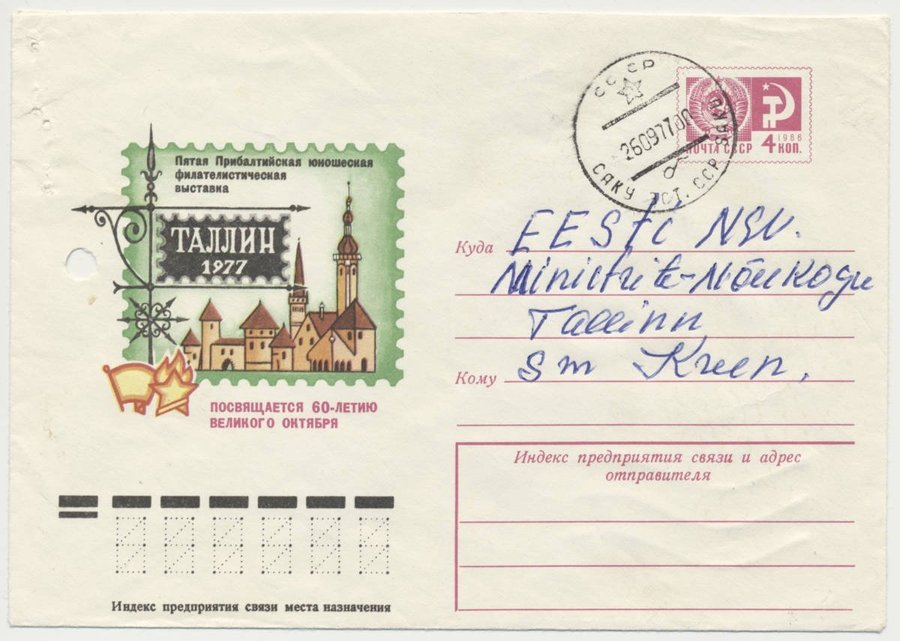 Пятая Прибалтийская юношеская
филателистическая
выставка
ТАЛЛИН
1977
ПОСВЯЩАЕТСЯ 60-ЛЕТИЮ
ВЕЛИКОГО ОКТЯБРЯ
СССР
260977
САКУ ЭСТ. ССР
SAKU
б
ПОЧТА СССР
1966
4 КОП.
Куда EESTC NSV.
Ministrite-Nõukogu
Tallinn
Кому sm Kreen.
Индекс предприятия связи и адрес
отправителя
Индекс предприятия связи места назначения